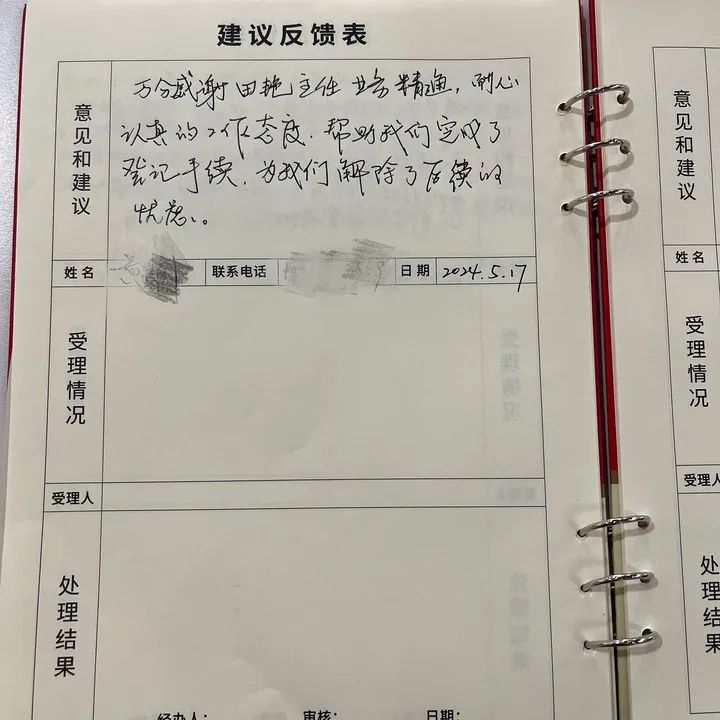 建议反馈表
意见和建议
万分感谢田艳主任业务精通,耐心
认真的工作态度.帮助我们完成了
登记手续.为我们解除了后续的
忧虑。
姓名
联系电话
日期 2024.5.17
受理情况
受理人
处理结果
经办人:
审核:
日期:
意见和建议
姓名
受理情况
受理人
处理结果